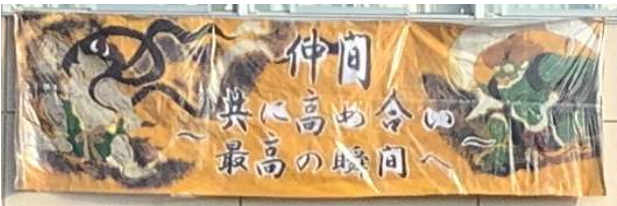 仲間
～共に高め合い～
最高の瞬間へ